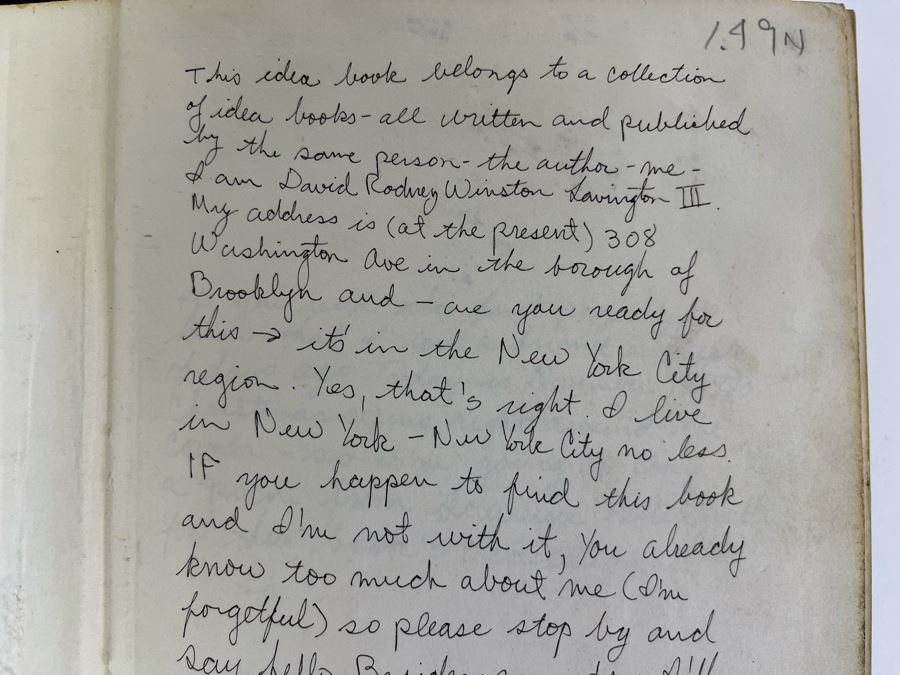 1.49N
This idea book belongs to a collection
of idea books - all written and published
by the same person - the author - me -
I am David Rodney Winston Lavington III.
My address is (at the present) 308
Washington Ave in the borough of
Brooklyn and - are you ready for
this → it's in the New York City
region. Yes, that's right. I live
in New York - New York City no less.
IF you happen to find this book
and I'm not with it, You already
know too much about me (I'm
forgetful) so please stop by and
say hello I'll